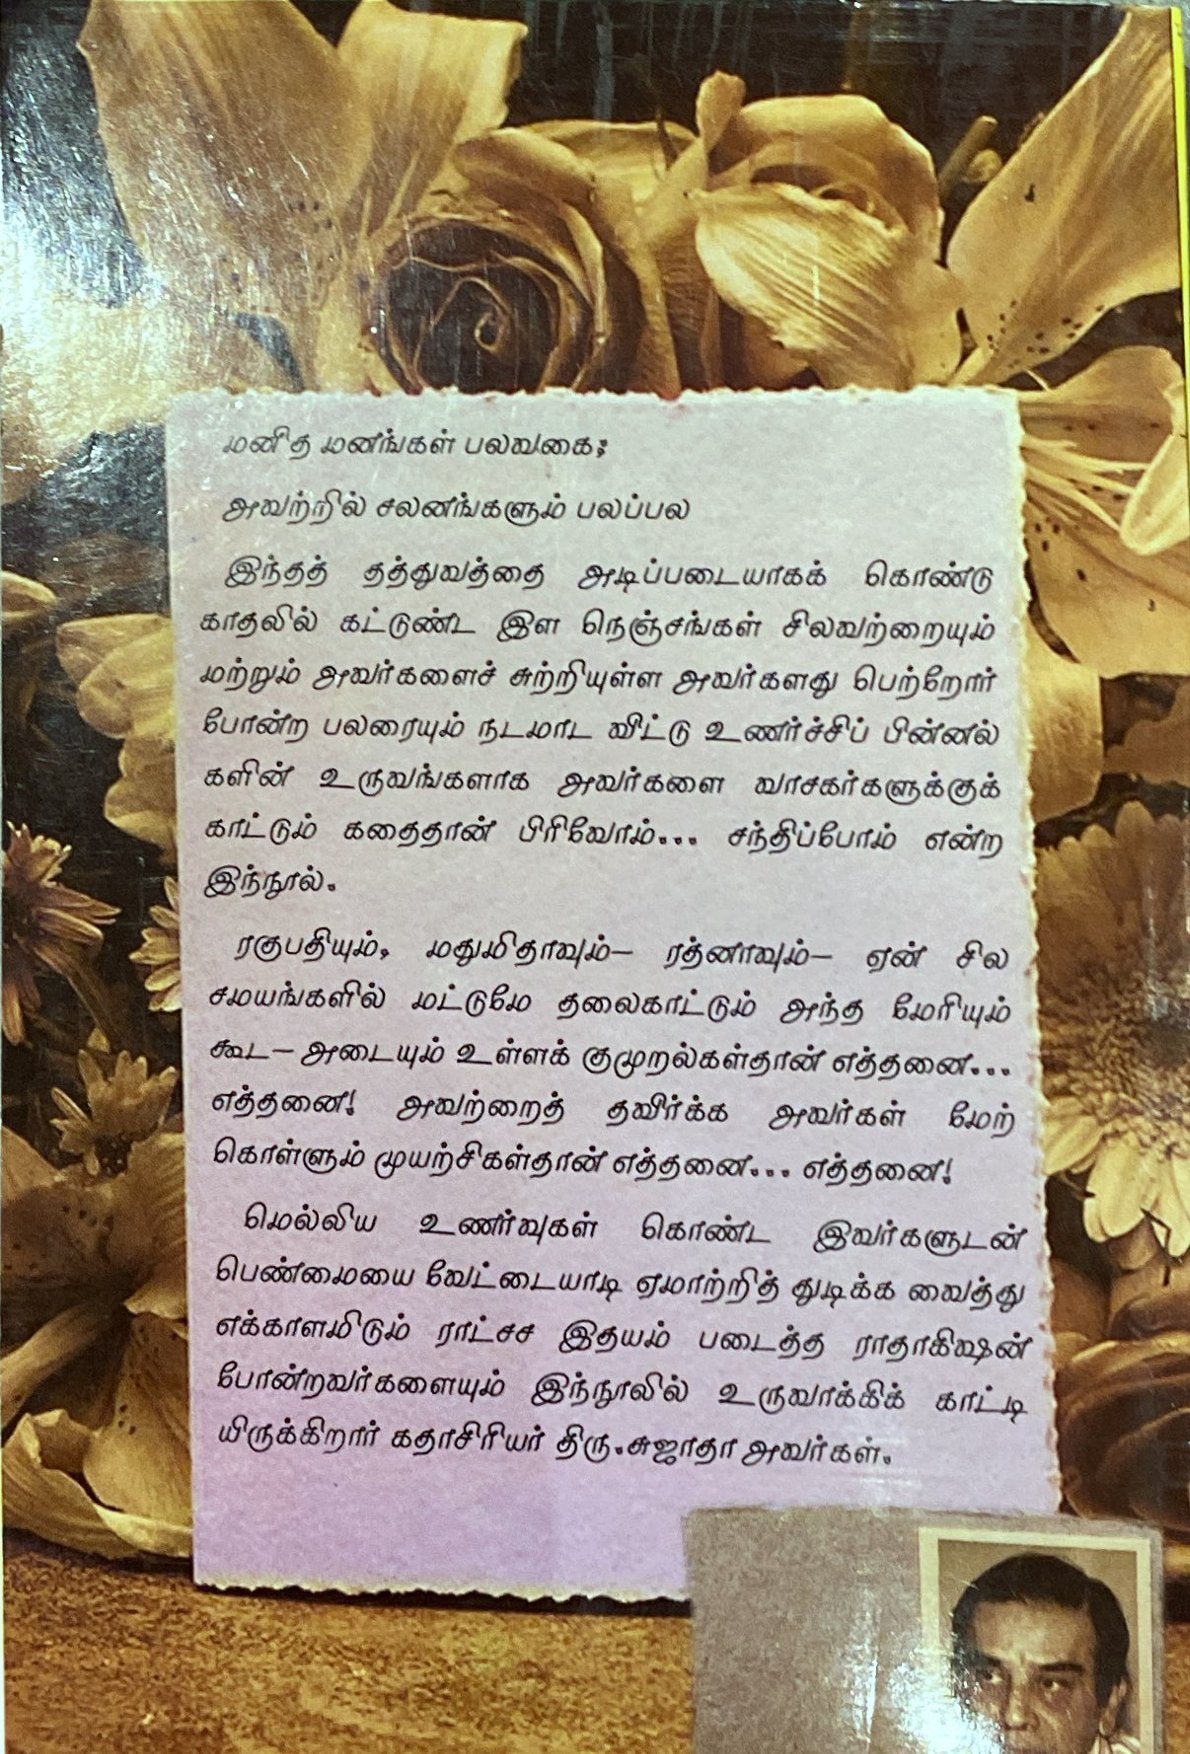 மனித மனங்கள் பலவகை;
அவற்றில் சலனங்களும் பலப்பல
இந்தத் தத்துவத்தை அடிப்படையாகக் கொண்டு
காதலில் கட்டுண்ட இள நெஞ்சங்கள் சிலவற்றையும்
மற்றும் அவர்களைச் சுற்றியுள்ள அவர்களது பெற்றோர்
போன்ற பலரையும் நடமாட விட்டு உணர்ச்சிப் பின்னல்
களின் உருவங்களாக அவர்களை வாசகர்களுக்குக்
காட்டும் கதைதான் பிரிவோம்... சந்திப்போம் என்ற
இந்நூல்.
ரகுபதியும், மதுமிதாவும்— ரத்னாவும்— ஏன் சில
சமயங்களில் மட்டுமே தலைகாட்டும் அந்த மேரியும்
கூட— அடையும் உள்ளக் குமுறல்கள்தான் எத்தனை...
எத்தனை! அவற்றைத் தவிர்க்க அவர்கள் மேற்
கொள்ளும் முயற்சிகள்தான் எத்தனை... எத்தனை!
மெல்லிய உணர்வுகள் கொண்ட இவர்களுடன்
பெண்மையை வேட்டையாடி ஏமாற்றித் துடிக்க வைத்து
எக்காளமிடும் ராட்சச இதயம் படைத்த ராதாகிஷன்
போன்றவர்களையும் இந்நூலில் உருவாக்கிக் காட்டி
யிருக்கிறார் கதாசிரியர் திரு.சுஜாதா அவர்கள்.